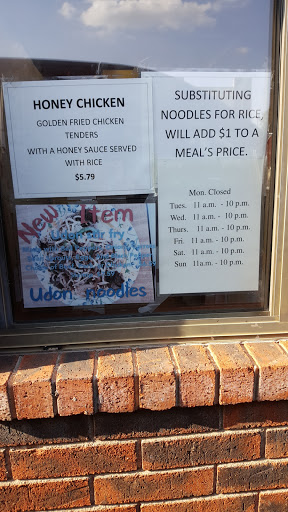 HONEY CHICKEN
GOLDEN FRIED CHICKEN
TENDERS
WITH A HONEY SAUCE SERVED
WITH RICE
$5.79
SUBSTITUTING
NOODLES FOR RICE,
WILL ADD $1 TO A
MEAL'S PRICE.
Mon. Closed
Tues. 11 a.m. - 10 p.m.
Wed. 11 a.m. - 10 p.m.
Thurs. 11 a.m. - 10 p.m.
Fri. 11 a.m. - 10 p.m.
Sat. 11 a.m. - 10 p.m.
Sun 11a.m. - 10 p.m.
New Item
fry
Udon noodles